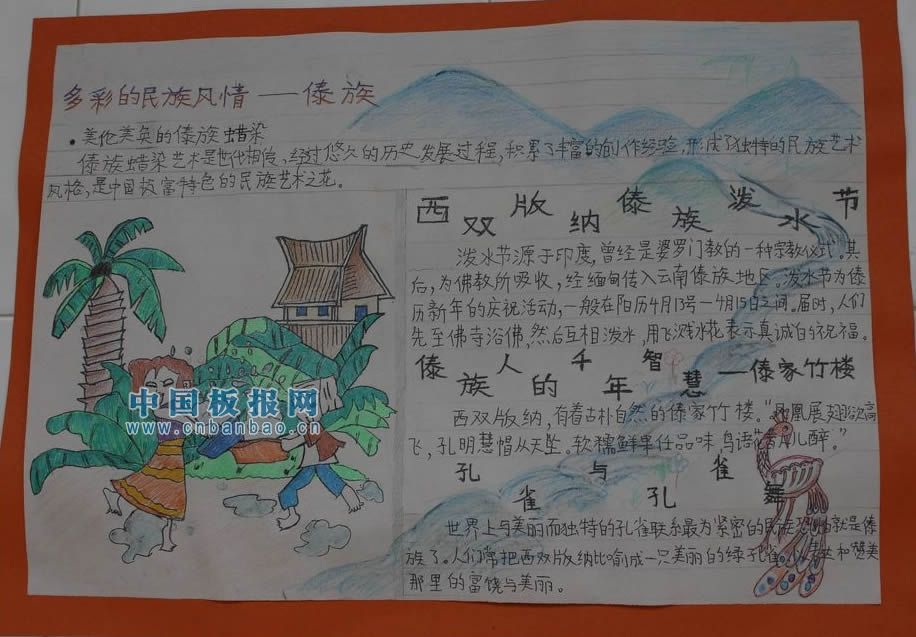 多彩的民族风情——傣族
·美伦美奂的傣族蜡染
傣族蜡染艺术是世代相传、经过悠久的历史发展过程,积累了丰富的创作经验,形成了独特的民族艺术
风格,是中国极富特色的民族艺术之花。
西双版纳傣族泼水节
泼水节源于印度,曾经是婆罗门教的一种宗教仪式。其
后,为佛教所吸收,经缅甸传入云南傣族地区。泼水节为傣
历新年的庆祝活动,一般在阳历4月13号一4月15日之间。届时,人们
先至佛寺浴佛,然后互相泼水,用飞溅水花表示真诚的祝福。
傣族人的千年智慧——傣家竹楼
西双版纳,有着古朴自然的傣家竹楼。“凤凰展翅欲高
飞,孔明慧帽从天坠。软糯鲜果仕品味,鸟语花香月儿醉。”
孔雀与孔雀舞
世界上与美丽而独特的孔雀联系最为紧密的民族恐怕就是傣
族了。人们常把西双版纳比喻成一只美丽的绿孔雀。和赞美
那里的富饶与美丽。
中国板报网
www.cnbanbao.cn